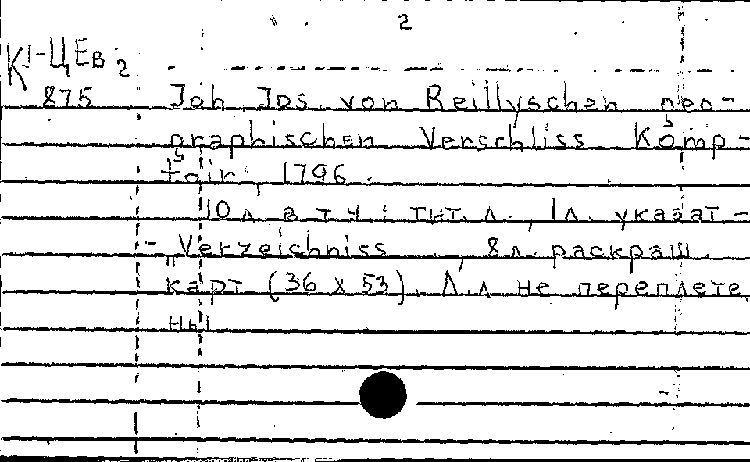 2
К1-ЦЕв 2
875 Joh. Jos. von Reillyschen geo-
graphischen Verschliss Komp-
toir, 1796.
10 л. в т.ч.: тит. л., 1л. указат-
- „Verzeichniss", 8л. раскраш.
карт (36 х 53). Л.л не переплете
ны